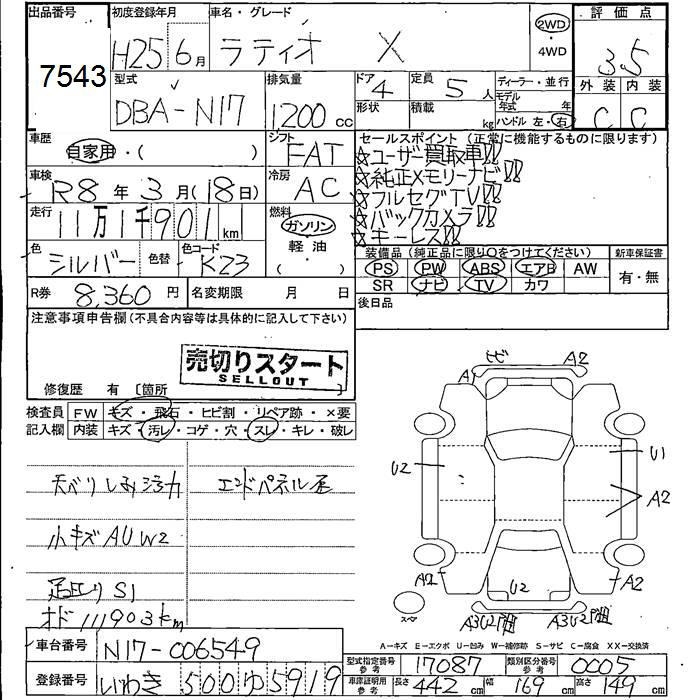 出品番号
7543
初度登録年月
H25 6月
車名・グレード
ラティオ X
2WD
・
4WD
評価点
3.5
外装 内装
C C
型式
DBA-N17
排気量
1200 cc
ドア
4
形状
定員
5 人
積載
kg
ディーラー・並行
モデル年式 年
ハンドル 左・右
車歴
自家用・( )
シフト
FAT
セールスポイント(正常に機能するものに限ります)
☆ユーザー買取車!!
☆純正メモリーナビ!!
☆フルセグTV!!
☆バックカメラ!!
☆キーレス!!
車検
R8年3月(18日)
冷房
AC
走行
11万1千901km
燃料
ガソリン
軽油
( )
色
シルバー
色替
色コード
K23
装備品(純正品に限り○をつけてください)
PS PW ABS エアB AW
SR ナビ TV カワ
新車保証書
有・無
R券 8,360円
名変期限 月 日
後日品
注意事項申告欄(不具合内容等は具体的に記入して下さい)
売切りスタート
SELLOUT
修復歴 有 〔箇所 〕
検査員
記入欄
FW キズ・飛石・ヒビ割・リペア跡・×要
内装 キズ・汚レ・コゲ・穴・スレ・キレ・破レ
天ベリしみ
エンドパネル
小キズAUW2
S1
オド111903km
ヒビ
A1
A2
U2
U1
A2
A2
A2
U2
スペア
A3U2
A3U2
A-キズ E-エクボ U-凹み W-補修跡 S-サビ C-腐食 XX-交換済
車台番号 N17-006549
型式指定番号
参考
17087
類別区分番号
参考
0005
登録番号 いわき500ゆ5919
車庫証明用
参考
長さ 442cm 幅 169cm 高さ 149cm